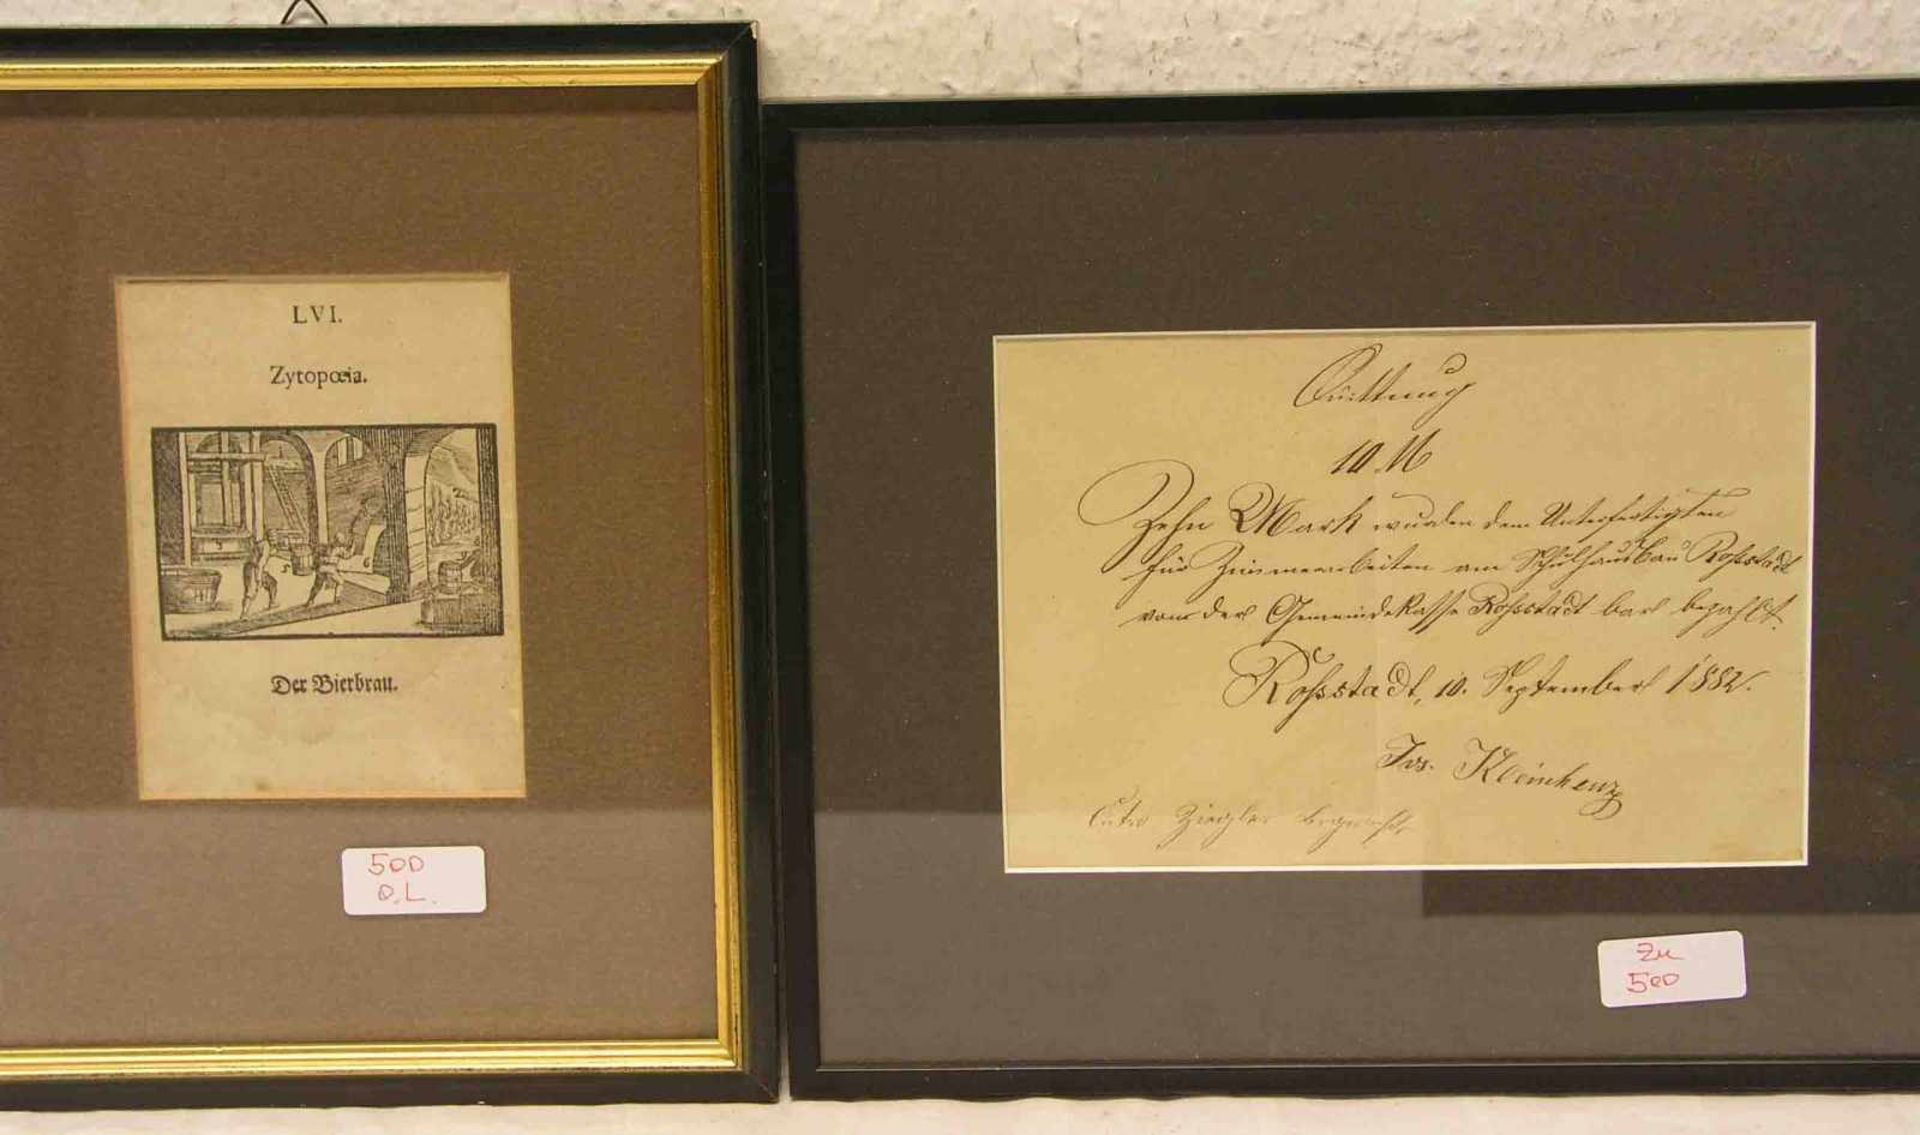 LVI.
Zytopœia.
2
3
5
6
Der Bierbrau.
500
O.L.
Quittung
10 M
Zehn Mark wurden dem Unterfertigten
für Zimmerarbeiten am Schulhausbau Roßstadt
von der Gemeindekasse Rossstadt bar bezahlt.
Rossstadt, 10. September 1882.
Jos. Kleinhenz
Ziegler
Zu
500